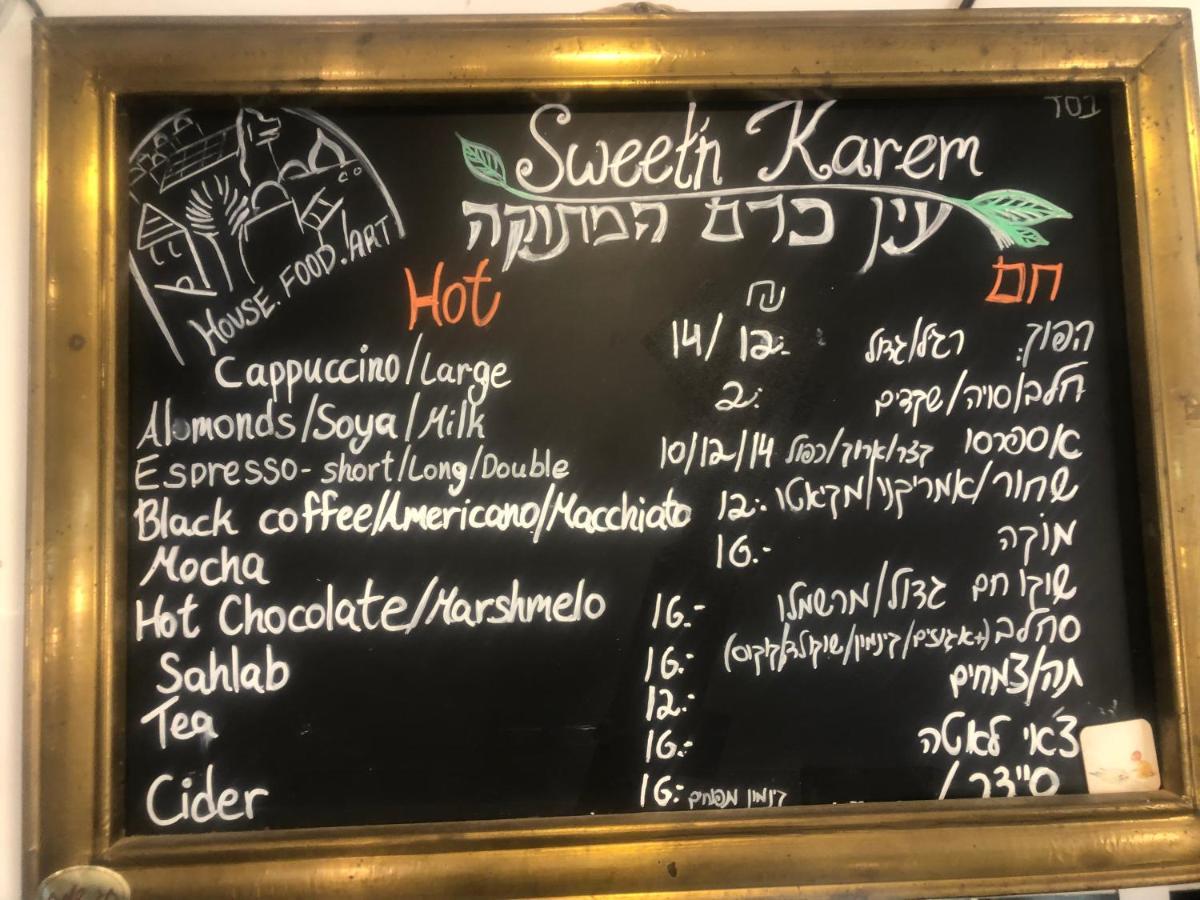 בסד
Sweet'n Karem
עין כרם המתוקה
HOUSE.FOOD.ART
Hot ₪ חם
Cappuccino/Large 14/12.- הפוך: רגיל/גדול
Alomonds/Soya/Milk 2.- חלב/סויה/שקדים
Espresso- short/Long/Double 10/12/14 אספרסו קצר/ארוך/כפול
Black coffee/Americano/Macchiato 12.- שחור/אמריקנו/מקיאטו
Mocha 16.- מוקה
Hot Chocolate/Marshmelo 16.- שוקו חם גדול/מרשמלו
Sahlab 16.- סחלב (+אגוזים/קינמון/שוקולד/קוקוס)
Tea 12.- תה/צמחים
16.- צ'אי לאטה
Cider 16.- סיידר / קינמון תפוחים